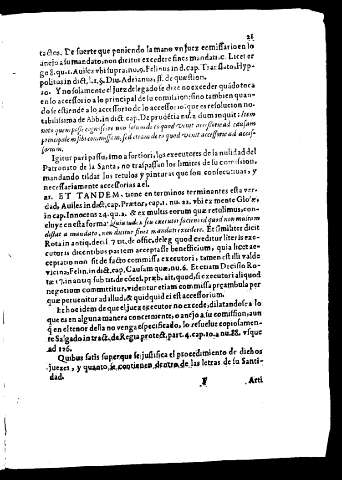 21
tactes. De suerte que poniendo la mano vn juez comissario en lo
anejo a su mandato, non dicitur excedere fines mandati. C. Licet er
go 8. qu. 1. Auiles vbi supra, nu. 9. Felinus in d. cap.
politus in dict. l. 1. & Diu. Adrianus, ff. de question.
20. Y no solamente el juez delegado se dize no exceder quãdo toca
en lo accessorio a lo principal de su comision; sino tambien quan-
do se estiende a lo accessorio de lo accessorio: que es resolucion no-
tabilissima de Abb. in dict. cap. De prudẽtia nu. 2. dum inquit: Item
nota quem posse cognoscere non solum de eo quod venit accessoriè ad causam
principalem sibi commissam, sed etiam de eo quod venit accessoriè ad acces-
sorium.
Igitur pari passu, imo a fortiori, los executores de la nulidad del
Patronato de la Santa, no traspassan los limites de su comission,
mandando tildar los rotulos y pinturas que son consecutiuas, y
necessariamente accessorias a el.
21. ET TANDEM, tiene en terminos terminantes esta ver-
dad, Auiles in dict. cap. Prætor. cap. 1. nu. 22. vbi ex mente Glosæ
in cap. Innocens 24. qu. 2. & ex multis eorum quæ retulimus, con-
cluye en esta forma: Quia iudex seu executor faciens id quod non multum
distat a mandato, non dicitur fines mandati excedere. Et similiter dicit
Rota in antiq. deci. 17. tit. de offic. deleg. quod creditur literis exe-
cutoriis dicentibus partem acceptasse beneficium, quia licet ac-
ceptatio non sit de facto commissa executori, tamen est illi valde
vicina, Felin. in dict. cap. Causam quæ, nu. 6. Et etiam Decisio Ro-
tæ 17. in antiq. sub tit. de cõces. præb. ait, quod, si executori aliquod
negotium committitur, videntur etiam commissa præambula per
quæ peruenitur ad illud, & quidquid ei est accessorium.
Et ho idem de que el juez executor no excede, dilatandose a lo
que es en alguna manera concerniente, o anejo a su comission, aun
q̃ en el tenor della no venga especificado, lo resuelue copiosamen-
te Salgado in tract. de Regia protect. part. 4. cap. 10. a nu. 88. vsque
ad 126.
Quibus satis superque se justifica el procedimiento de dichos
juezes, y quanto se contienen dentro de las letras de su Santi-
dad.
F Arti